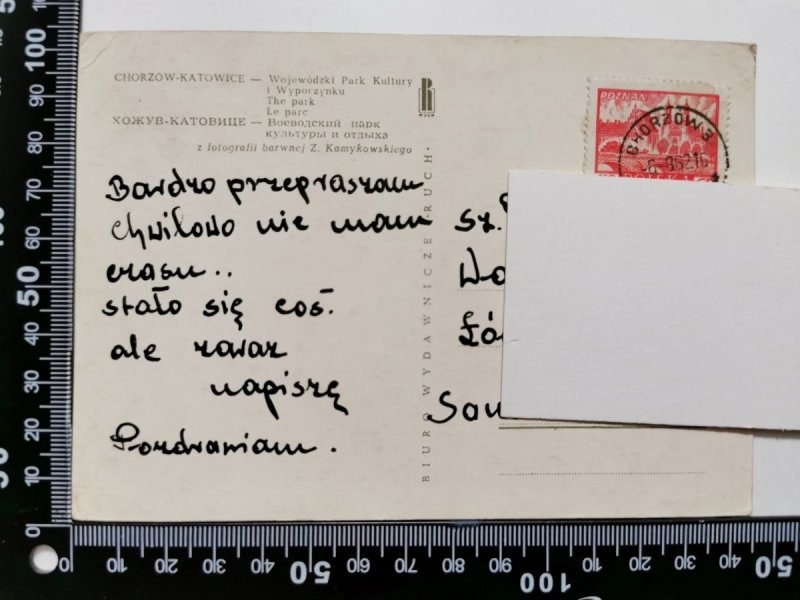 CHORZÓW-KATOWICE — Wojewódzki Park Kultury
i Wypoczynku
The park
Le parc
ХОЖУВ-КАТОВИЦЕ — Воеводский парк
культуры и отдыха
z fotografii barwnej Z. Kamykowskiego
RUCH
Bardzo przepraszam
chwilowo nie mam
czasu..
stało się coś.
ale zaraz
napiszę
Pozdrawiam.
BIURO WYDAWNICZE „RUCH"
POZNAŃ
CHORZÓW 3
POLSKA
Sz.
0 10 20 30 40 50 60 70 80 90 100
50 60 70 80 90 100
10 20 30 40 50 60 70 80 90 100 10 20 30 40 50